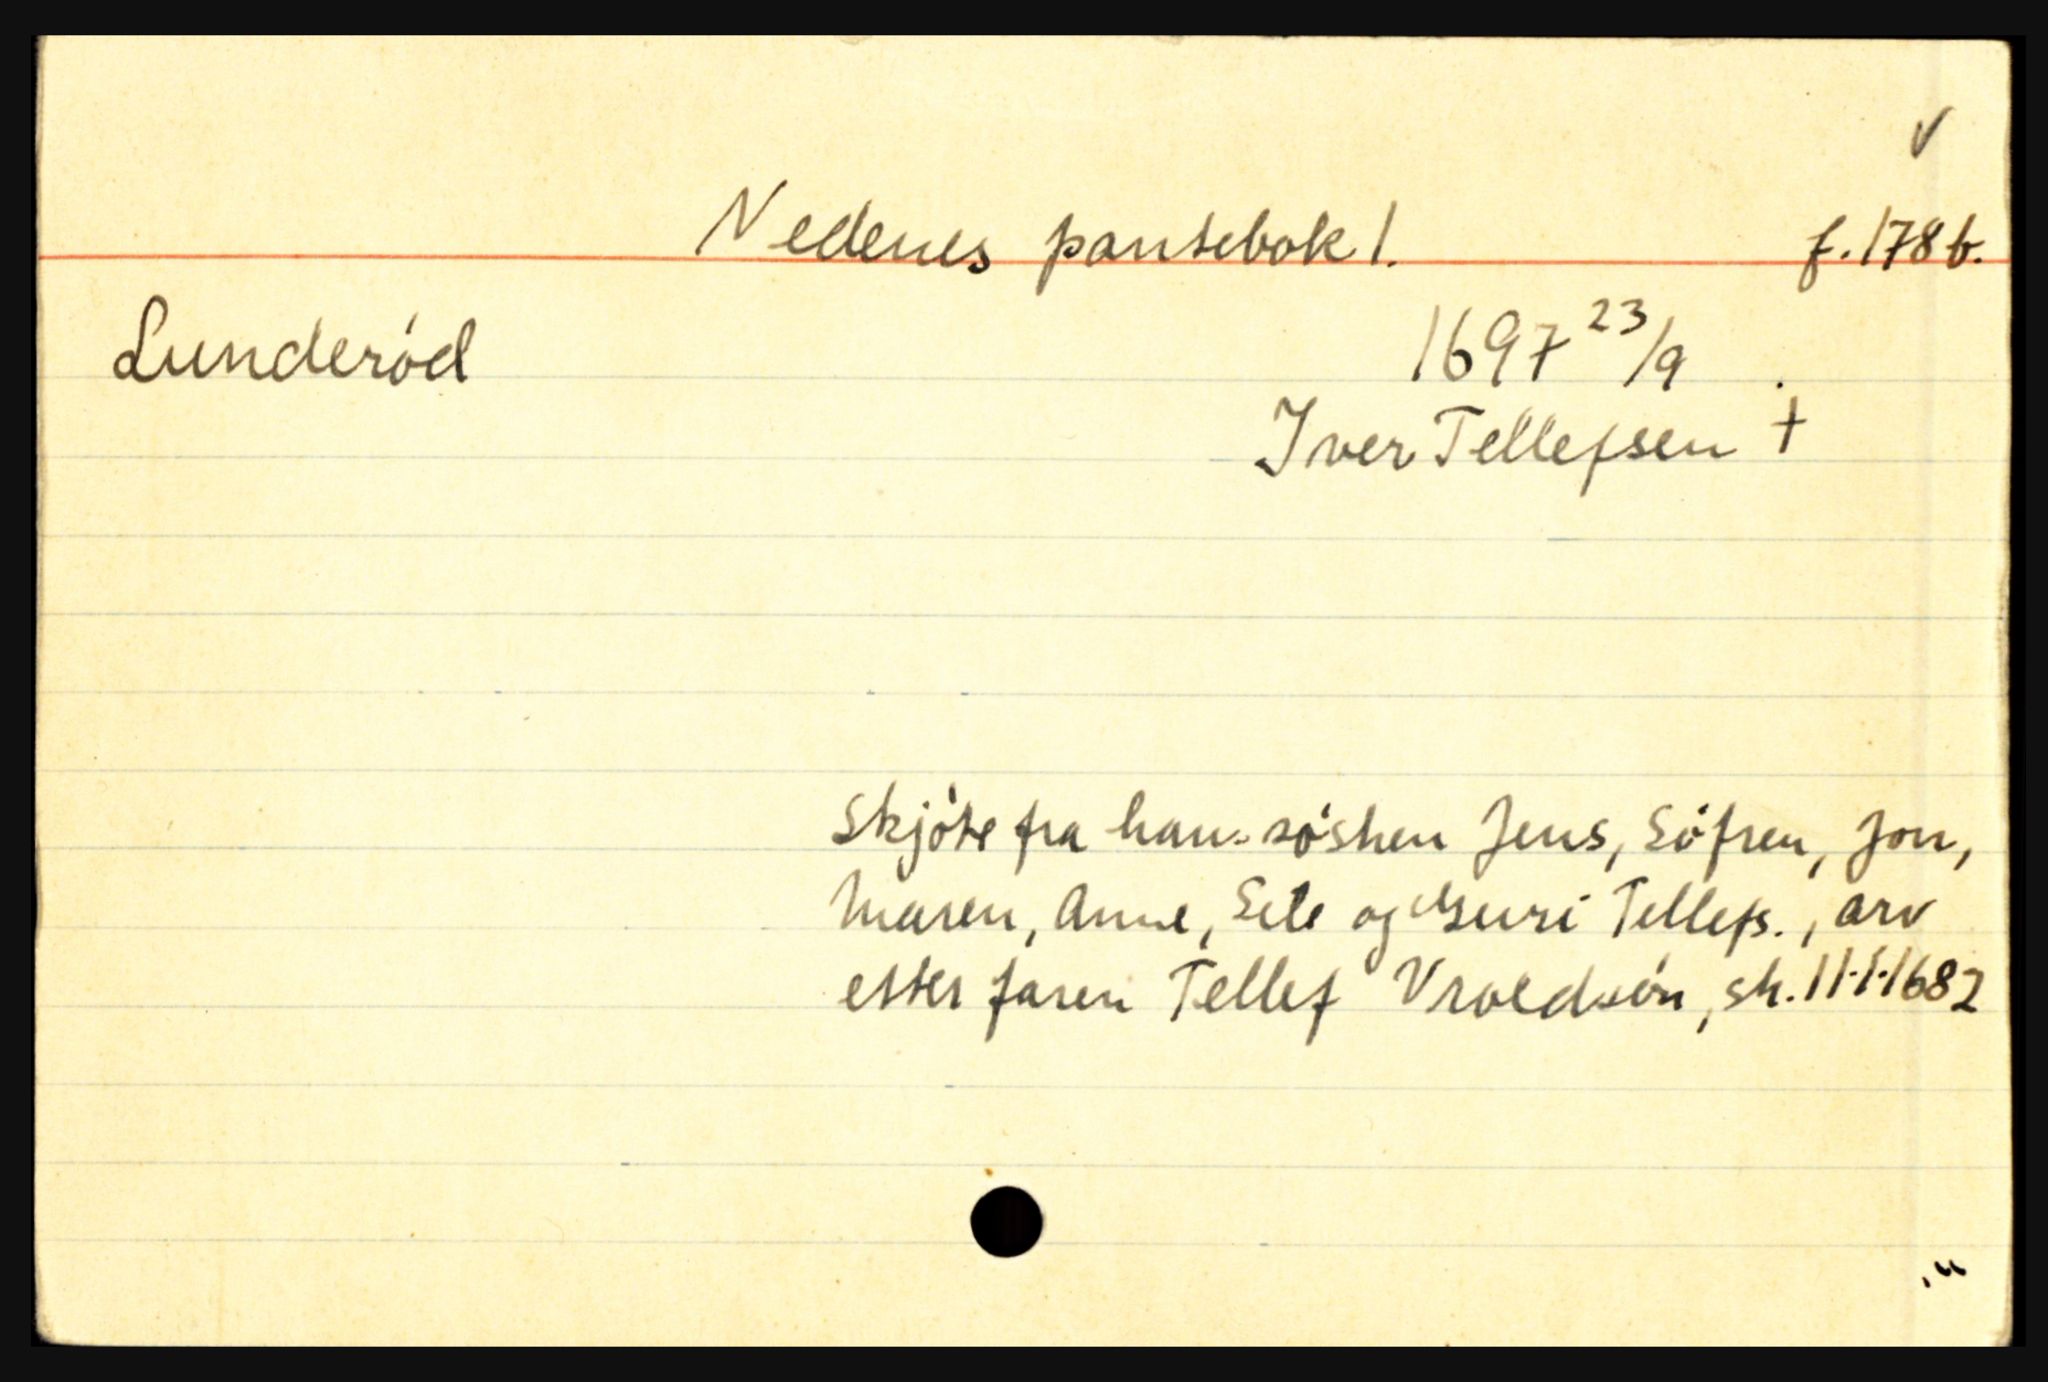 Nedenes pantebok 1. f. 178 b.
Lunderød 1697 23/9
Iver Tellefsen +
Skjøte fra hans søsken Jens, Søfren, Jon,
Maren, Anne, Sele og Guri Tellefs., arv
etter faren Tellef Vroldsøn, sk. 11·1·1682